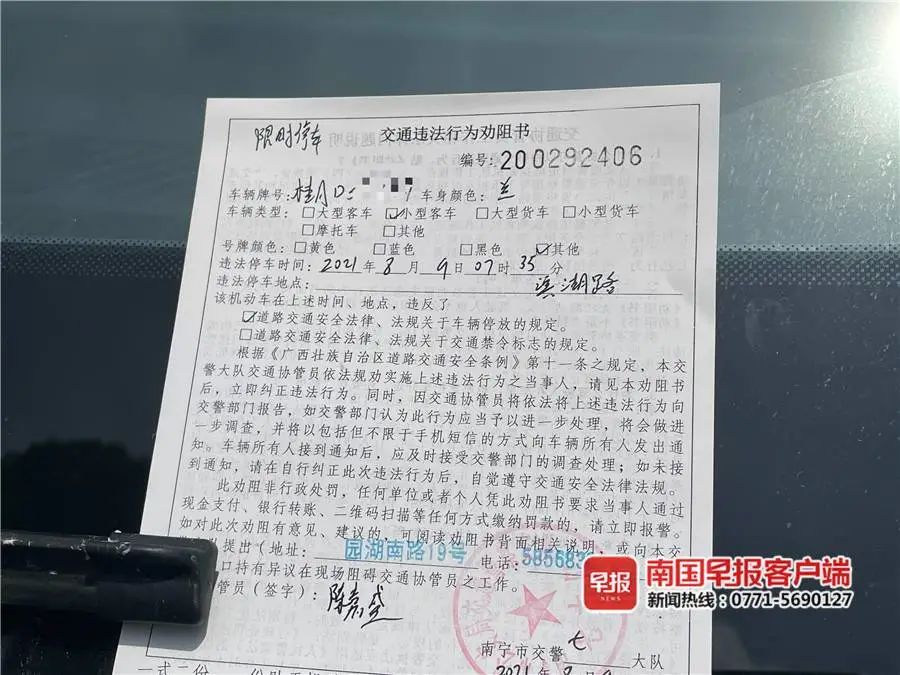 限时停车
交通违法行为劝阻书
编号:200292406
车辆牌号: 桂 车身颜色: 兰
车辆类型: □大型客车 ☑小型客车 □大型货车 □小型货车
□摩托车 □其他
号牌颜色: □黄色 □蓝色 □黑色 ☑其他
违法停车时间: 2021年8月9日07时35分
违法停车地点: 滨湖路
该机动车在上述时间、地点,违反了
☑道路交通安全法律、法规关于车辆停放的规定。
□道路交通安全法律、法规关于交通禁令标志的规定。
根据《广西壮族自治区道路交通安全条例》第十一条之规定,本交
警大队交通协管员依法规劝实施上述违法行为之当事人,请见本劝阻书
后,立即纠正违法行为。同时,因交通协管员将依法将上述违法行为向
交警部门报告,如交警部门认为此行为应当予以进一步处理,将会做进
一步调查,并将以包括但不限于手机短信的方式向车辆所有人发出通
知。车辆所有人接到通知后,应及时接受交警部门的调查处理;如未接
到通知,请在自行纠正此次违法行为后,自觉遵守交通安全法律法规。
此劝阻非行政处罚,任何单位或者个人凭此劝阻书要求当事人通过
现金支付、银行转账、二维码扫描等任何方式缴纳罚款的,请立即报警。
如对此次劝阻有意见、建议的,可阅读劝阻书背面相关说明,或向本交
提出(地址: 园湖南路19号 电话: 585683
口持有异议在现场阻碍交通协管员之工作。
管员(签字):
南宁市交警 七 大队
2021
一式二份
早报
NEWS
南国早报客户端
新闻热线:0771-5690127